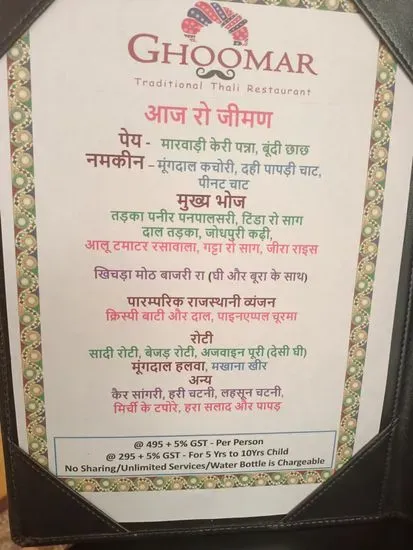 GHOOMAR
Traditional Thali Restaurant
आज रो जीमण
पेय - मारवाड़ी केरी पन्ना, बूंदी छाछ
नमकीन – मूंगदाल कचोरी, दही पापड़ी चाट,
पीनट चाट
मुख्य भोज
तड़का पनीर पनपालसरी, टिंडा रो साग
दाल तड़का, जोधपुरी कढ़ी,
आलू टमाटर रसावाला, गट्टा रो साग, जीरा राइस
खिचड़ा मोठ बाजरी रा (घी और बूरा के साथ)
पारम्परिक राजस्थानी व्यंजन
क्रिस्पी बाटी और दाल, पाइनएप्पल चूरमा
रोटी
सादी रोटी, बेजड़ रोटी, अजवाइन पूरी (देसी घी)
मूंगदाल हलवा, मखाना खीर
अन्य
कैर सांगरी, हरी चटनी, लहसून चटनी,
मिर्ची के टपोरे, हरा सलाद और पापड़
@ 495 + 5% GST - Per Person
@ 295 + 5% GST - For 5 Yrs to 10Yrs Child
No Sharing/Unlimited Services/Water Bottle is Chargeable